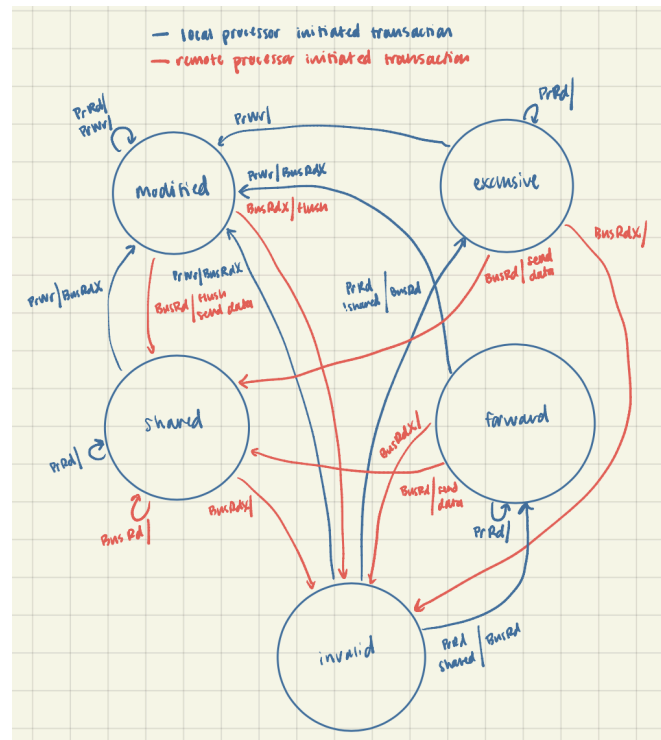 — local processor initiated transaction
— remote processor initiated transaction
PrRd/
PrWr/
PrRd/
PrWr/
modified
exclusive
PrWr/BusRdX
BusRdX/flush
BusRdX/
PrWr/BusRdX
PrWr/BusRdX
BusRd/flush
send data
PrRd
!shared/BusRd
BusRd/send
data
shared
forward
PrRd/
BusRdX/
BusRd/send
data
BusRdX/
BusRd/
PrRd/
invalid
PrRd
shared/BusRd